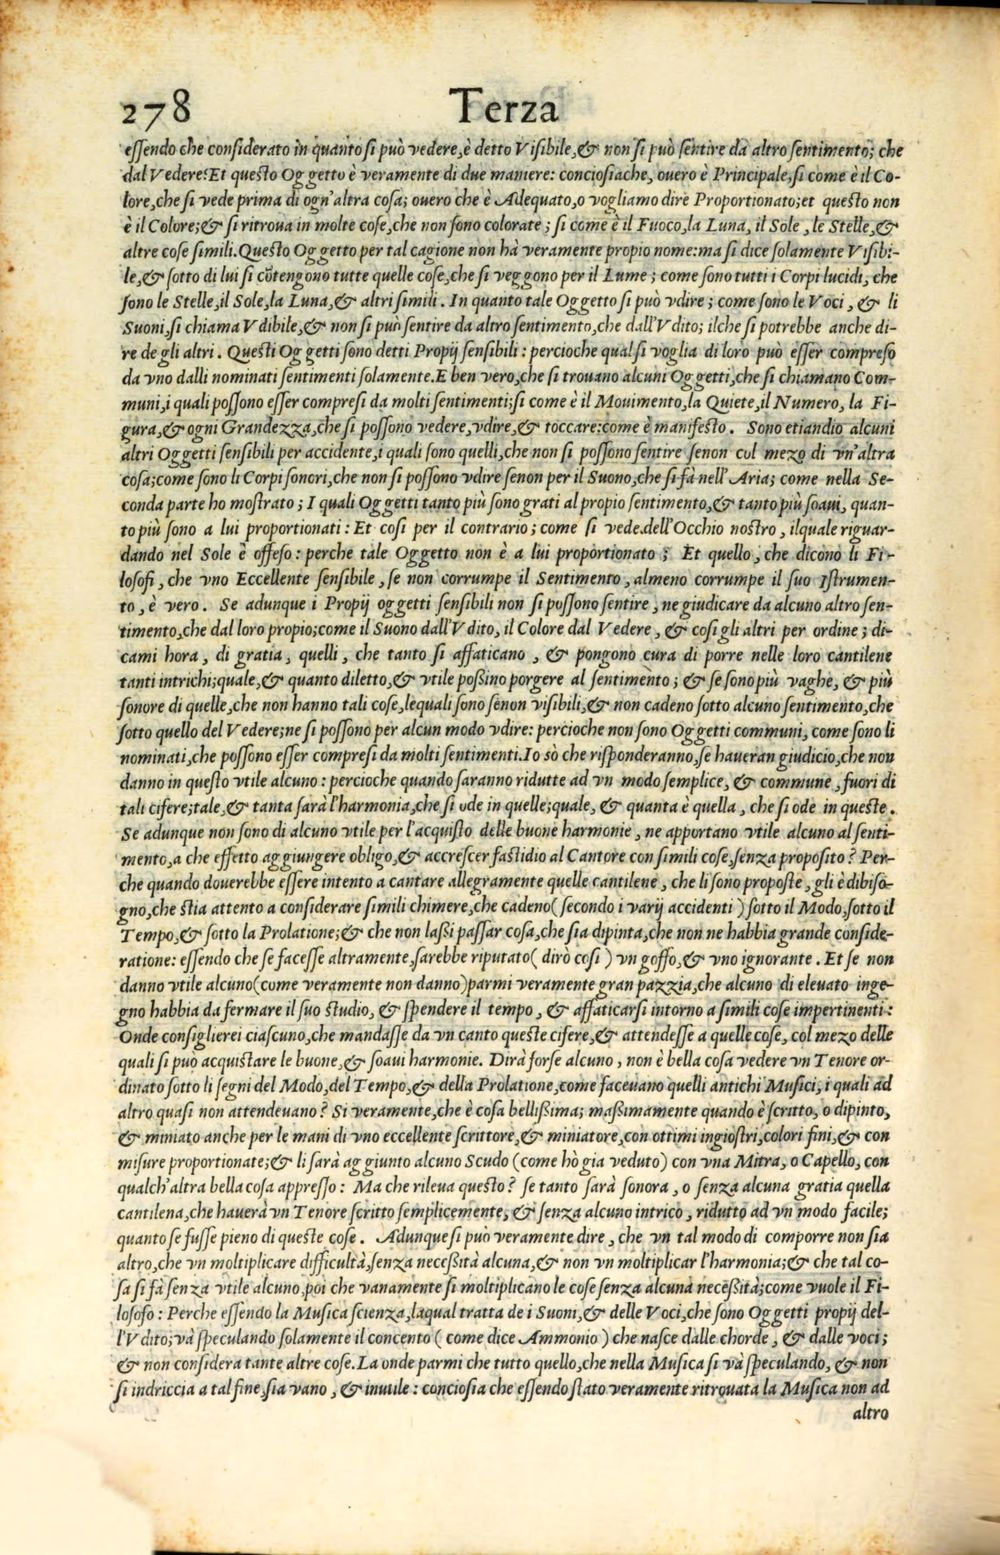 278 Terza
eſſendo che conſiderato in quanto ſi può vedere, è detto Viſibile, & non ſi può ſentire da altro ſentimento; che
dal Vedere: Et queſto Oggetto è veramente di due maniere: concioſiache, ouero è Principale, ſi come è il Co-
lore, che ſi vede prima di ogn'altra coſa; ouero che è Adequato, o vogliamo dire Proportionato; et queſto non
è il Colore; & ſi ritroua in molte coſe, che non ſono colorate; ſi come è il Fuoco, la Luna, il Sole, le Stelle, &
altre coſe ſimili. Queſto Oggetto per tal cagione non hà veramente propio nome: ma ſi dice ſolamente Viſibi-
le, & ſotto di lui ſi cōtengono tutte quelle coſe, che ſi veggono per il Lume; come ſono tutti i Corpi lucidi, che
ſono le Stelle, il Sole, la Luna, & altri ſimili. In quanto tale Oggetto ſi può vdire; come ſono le Voci, & li
Suoni, ſi chiama Vdibile, & non ſi può ſentire da altro ſentimento, che dall'Vdito; ilche ſi potrebbe anche di-
re de gli altri. Queſti Oggetti ſono detti Propij ſenſibili: percioche qual ſi voglia di loro può eſſer compreſo
da vno dalli nominati ſentimenti ſolamente. E ben vero, che ſi trouano alcuni Oggetti, che ſi chiamano Com-
muni, i quali poſſono eſſer compreſi da molti ſentimenti; ſi come è il Mouimento, la Quiete, il Numero, la Fi-
gura, & ogni Grandezza, che ſi poſſono vedere, vdire, & toccare: come è manifeſto. Sono etiandio alcuni
altri Oggetti ſenſibili per accidente, i quali ſono quelli, che non ſi poſſono ſentire ſenon col mezo di vn'altra
coſa; come ſono li Corpi ſonori, che non ſi poſſono vdire ſenon per il Suono, che ſi fà nell'Aria; come nella Se-
conda parte ho moſtrato; I quali Oggetti tanto più ſono grati al propio ſentimento, & tanto più ſoaui, quan-
to più ſono a lui proportionati: Et coſi per il contrario; come ſi vede dell'Occhio noſtro, ilquale riguar-
dando nel Sole è offeſo: perche tale Oggetto non è a lui proportionato; Et quello, che dicono li Fi-
loſofi, che vno Eccellente ſenſibile, ſe non corrumpe il Sentimento, almeno corrumpe il ſuo Iſtrumen-
to, è vero. Se adunque i Propij oggetti ſenſibili non ſi poſſono ſentire, ne giudicare da alcuno altro ſen-
timento, che dal loro propio; come il Suono dall'Vdito, il Colore dal Vedere, & coſi gli altri per ordine; di-
cami hora, di gratia, quelli, che tanto ſi affaticano, & pongono cura di porre nelle loro cantilene
tanti intrichi; quale, & quanto diletto, & vtile poßino porgere al ſentimento; & ſe ſono più vaghe, & più
ſonore di quelle, che non hanno tali coſe, lequali ſono ſenon viſibili, & non cadeno ſotto alcuno ſentimento, che
ſotto quello del Vedere; ne ſi poſſono per alcun modo vdire: percioche non ſono Oggetti communi, come ſono li
nominati, che poſſono eſſer compreſi da molti ſentimenti. Io sò che riſponderanno, ſe haueran giudicio, che non
danno in queſto vtile alcuno: percioche quando ſaranno ridutte ad vn modo ſemplice, & commune, fuori di
tali cifere; tale, & tanta ſarà l'harmonia, che ſi ode in quelle; quale, & quanta è quella, che ſi ode in queſte.
Se adunque non ſono di alcuno vtile per l'acquiſto delle buone harmonie, ne apportano vtile alcuno al ſenti-
mento, a che effetto aggiungere obligo, & accreſcer faſtidio al Cantore con ſimili coſe, ſenza propoſito? Per-
che quando douerebbe eſſere intento a cantare allegramente quelle cantilene, che li ſono propoſte, gli è dibiſo-
gno, che ſtia attento a conſiderare ſimili chimere, che cadeno (ſecondo i varij accidenti) ſotto il Modo, ſotto il
Tempo, & ſotto la Prolatione; & che non laßi paſſar coſa, che ſia dipinta, che non ne habbia grande conſide-
ratione: eſſendo che ſe faceſſe altramente, ſarebbe riputato (dirò coſi) vn goffo, & vno ignorante. Et ſe non
danno vtile alcuno (come veramente non danno) parmi veramente gran pazzia, che alcuno di eleuato inge-
gno habbia da fermare il ſuo ſtudio, & ſpendere il tempo, & affaticarſi intorno a ſimili coſe impertinenti:
Onde conſiglierei ciaſcuno, che mandaſſe da vn canto queſte cifere, & attendeſſe a quelle coſe, col mezo delle
quali ſi può acquiſtare le buone, & ſoaui harmonie. Dirà forſe alcuno, non è bella coſa vedere vn Tenore or-
dinato ſotto li ſegni del Modo, del Tempo, & della Prolatione, come faceuano quelli antichi Muſici, i quali ad
altro quaſi non attendeuano? Si veramente, che è coſa belliſſima; maßimamente quando è ſcritto, o dipinto,
& miniato anche per le mani di vno eccellente ſcrittore, & miniatore, con ottimi ingioſtri, colori fini, & con
miſure proportionate; & li ſarà aggiunto alcuno Scudo (come hò gia veduto) con vna Mitra, o Capello, con
qualch'altra bella coſa appreſſo: Ma che rileua queſto? ſe tanto ſarà ſonora, o ſenza alcuna gratia quella
cantilena, che hauerà vn Tenore ſcritto ſemplicemente, & ſenza alcuno intrico, ridutto ad vn modo facile;
quanto ſe fuſſe pieno di queſte coſe. Adunque ſi può veramente dire, che vn tal modo di comporre non ſia
altro, che vn moltiplicare difficultà, ſenza neceßità alcuna, & non vn moltiplicar l'harmonia; & che tal co-
ſa ſi fà ſenza vtile alcuno, poi che vanamente ſi moltiplicano le coſe ſenza alcuna neceßità; come vuole il Fi-
loſofo: Perche eſſendo la Muſica ſcienza, laqual tratta de i Suoni, & delle Voci, che ſono Oggetti propij del-
l'Vdito; và ſpeculando ſolamente il concento (come dice Ammonio) che naſce dalle chorde, & dalle voci;
& non conſidera tante altre coſe. La onde parmi che tutto quello, che nella Muſica ſi và ſpeculando, & non
ſi indriccia a tal fine, ſia vano, & inutile: concioſia che eſſendo ſtato veramente ritrouata la Muſica non ad
altro